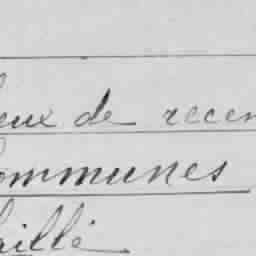 eux de recen
ommunes
aillé